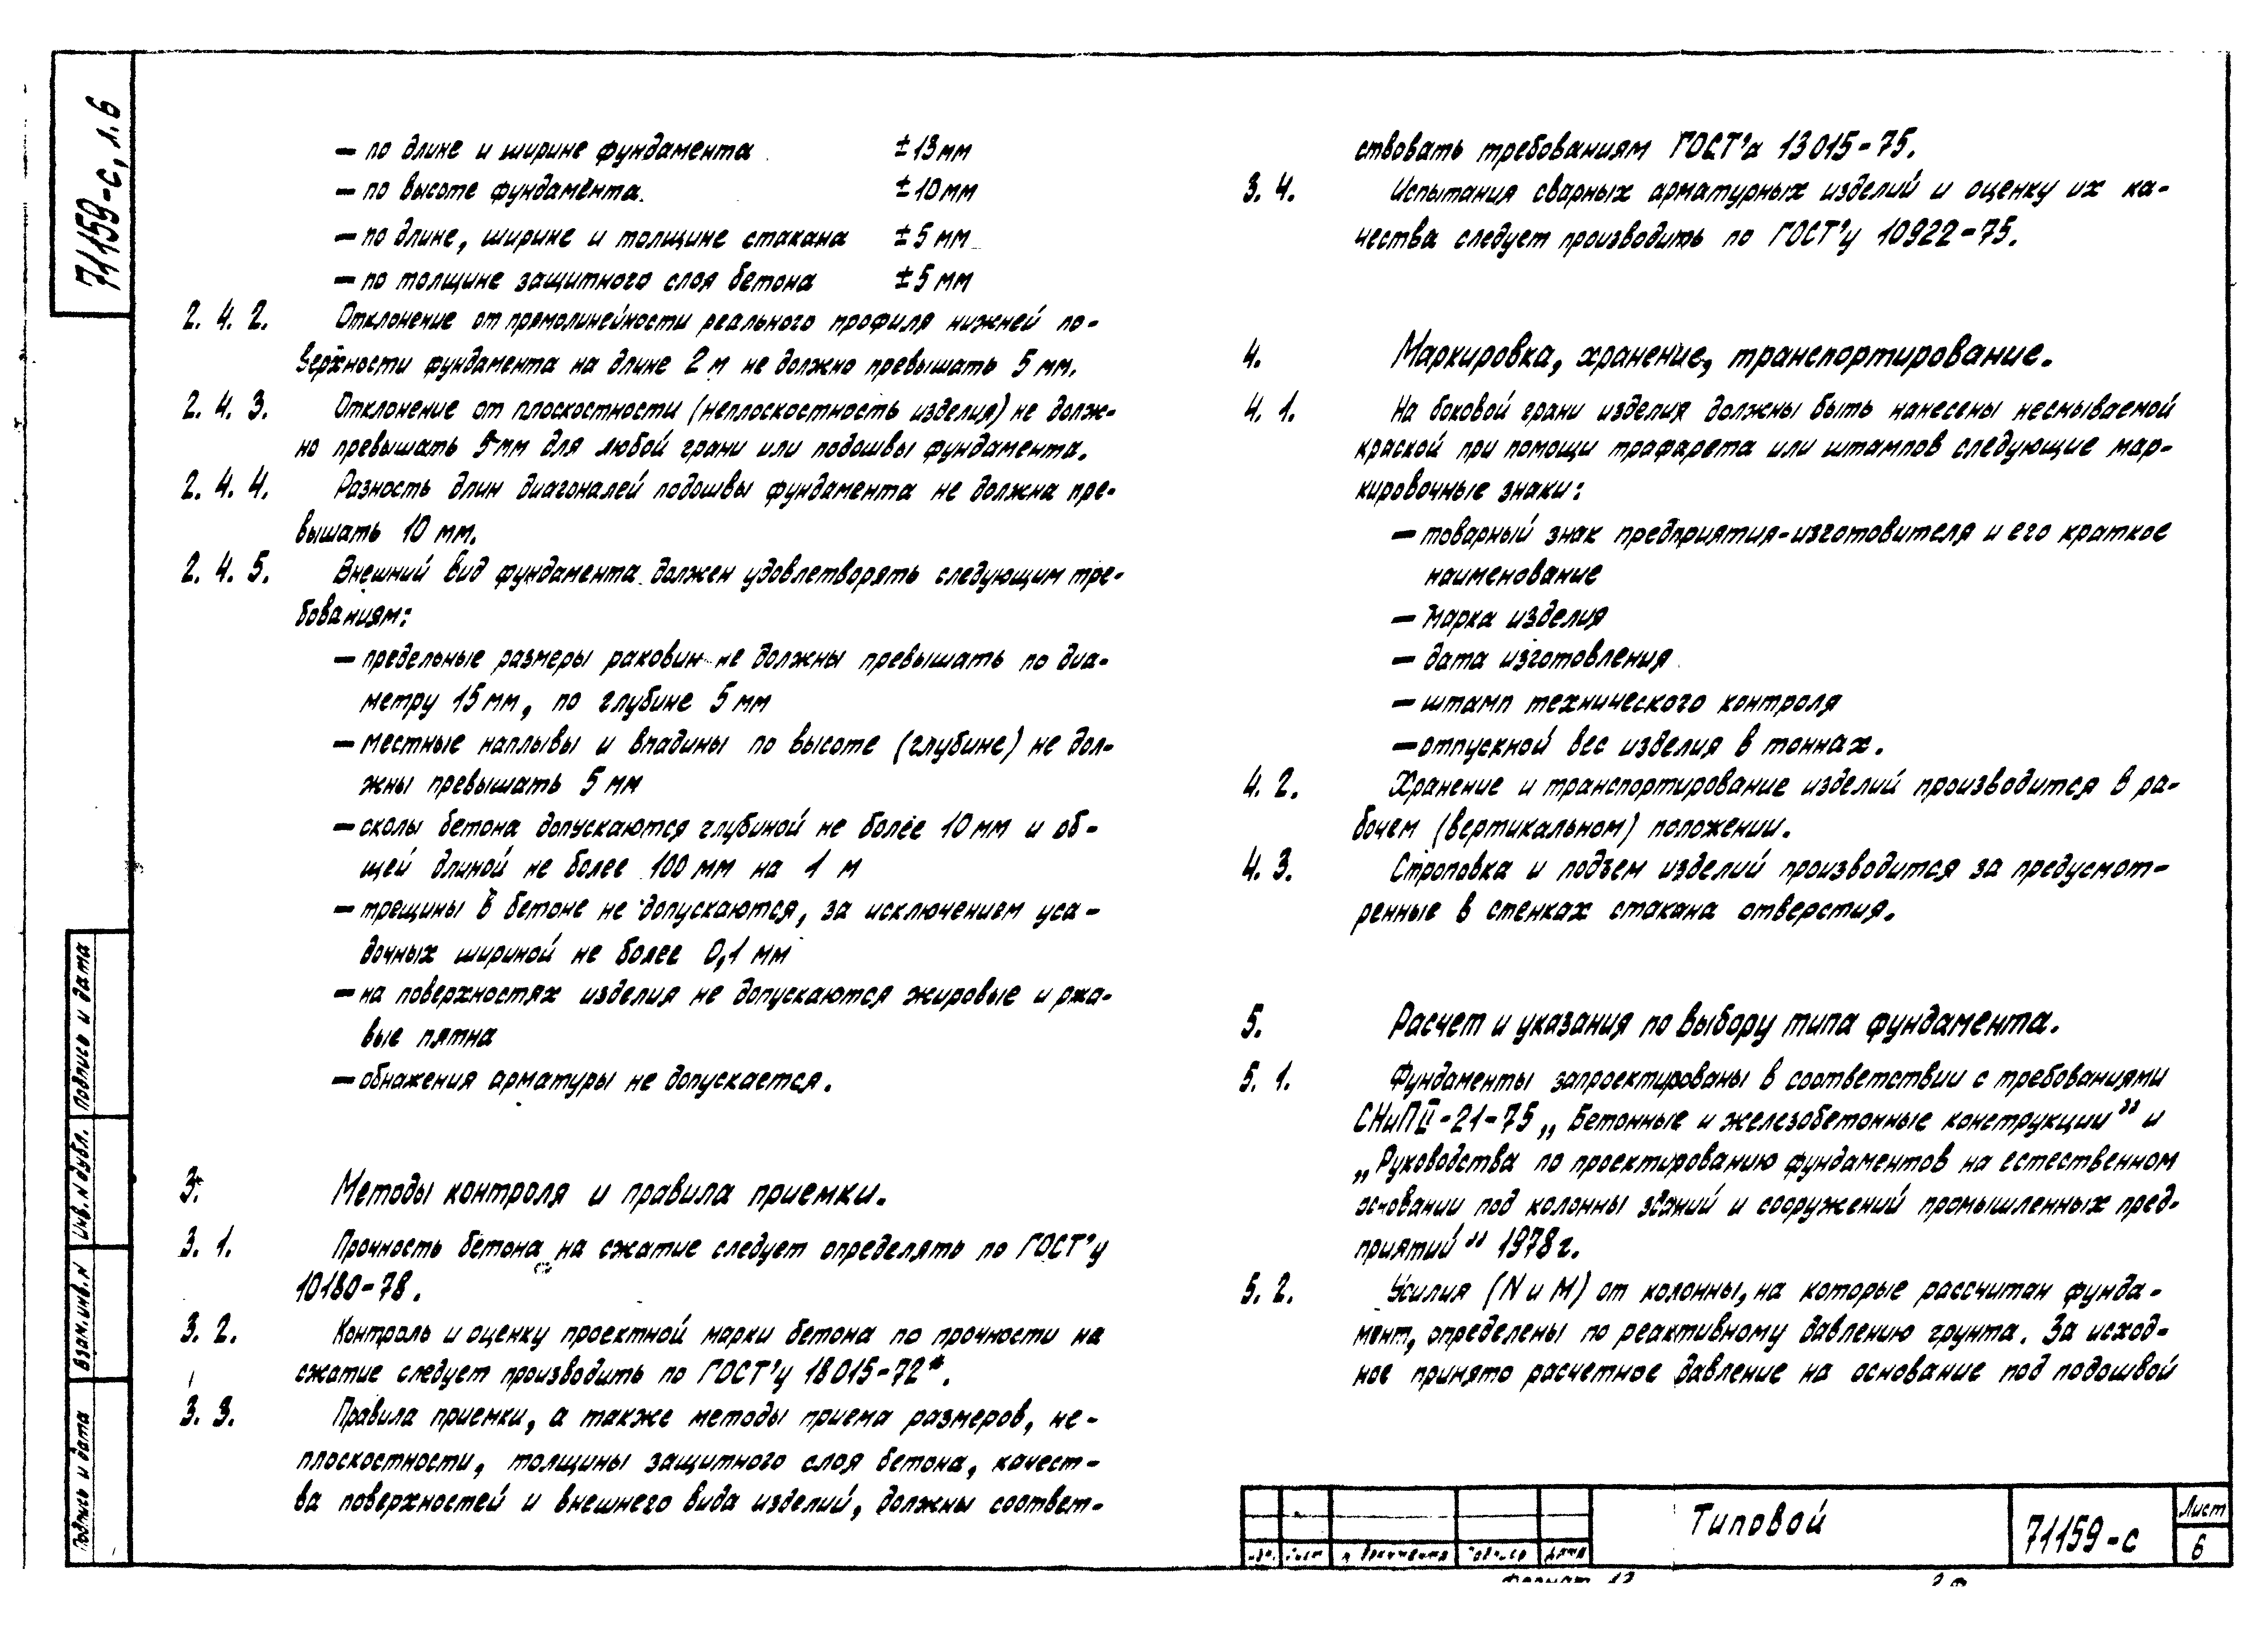 71159-с, л.6
– по длине и ширине фундамента ±13 мм
– по высоте фундамента. ±10 мм
– по длине, ширине и толщине стакана ±5 мм
– по толщине защитного слоя бетона ±5 мм
2. 4. 2. Отклонение от прямолинейности реального профиля нижней по-
верхности фундамента на длине 2 м не должно превышать 5 мм.
2. 4. 3. Отклонение от плоскостности (неплоскостность изделия) не долж-
но превышать 5 мм для любой грани или подошвы фундамента.
2. 4. 4. Разность длин диагоналей подошвы фундамента не должна пре-
вышать 10 мм.
2. 4. 5. Внешний вид фундамента должен удовлетворять следующим тре-
бованиям:
– предельные размеры раковин не должны превышать по диа-
метру 15 мм, по глубине 5 мм
– местные наплывы и впадины по высоте (глубине) не дол-
жны превышать 5 мм
– сколы бетона допускаются глубиной не более 10 мм и об-
щей длиной не более 100 мм на 1 м
– трещины в бетоне не допускаются, за исключением уса-
дочных шириной не более 0,1 мм
– на поверхностях изделия не допускаются жировые и ржа-
вые пятна
– обнажения арматуры не допускается.
3. Методы контроля и правила приемки.
3. 1. Прочность бетона на сжатие следует определять по ГОСТ'у
10180-78.
3. 2. Контроль и оценку проектной марки бетона по прочности на
сжатие следует производить по ГОСТ'у 18015-72*.
3. 3. Правила приемки, а также методы приема размеров, не-
плоскостности, толщины защитного слоя бетона, качест-
ва поверхностей и внешнего вида изделий, должны соответ-
ствовать требованиям ГОСТ'а 13015-75.
3. 4. Испытания сварных арматурных изделий и оценку их ка-
чества следует производить по ГОСТ'у 10922-75.
4. Маркировка, хранение, транспортирование.
4. 1. На боковой грани изделия должны быть нанесены несмываемой
краской при помощи трафарета или штампов следующие мар-
кировочные знаки:
– товарный знак предприятия-изготовителя и его краткое
наименование
– марка изделия
– дата изготовления
– штамп технического контроля
– отпускной вес изделия в тоннах.
4. 2. Хранение и транспортирование изделий производится в ра-
бочем (вертикальном) положении.
4. 3. Строповка и подъем изделий производится за предусмот-
ренные в стенках стакана отверстия.
5. Расчет и указания по выбору типа фундамента.
5. 1. Фундаменты запроектированы в соответствии с требованиями
СНиП II-21-75 „Бетонные и железобетонные конструкции” и
„Руководства по проектированию фундаментов на естественном
основании под колонны зданий и сооружений промышленных пред-
приятий” 1978г.
5. 2. Усилия (N и M) от колонны, на которые рассчитан фунда-
мент, определены по реактивному давлению грунта. За исход-
ное принято расчетное давление на основание под подошвой
Подпись и дата
Инв. N дубл.
Взам. инв. N
Подпись и дата
Изм. Лист N документа Подпись Дата
Типовой
71159-с
Лист
6
Формат 12